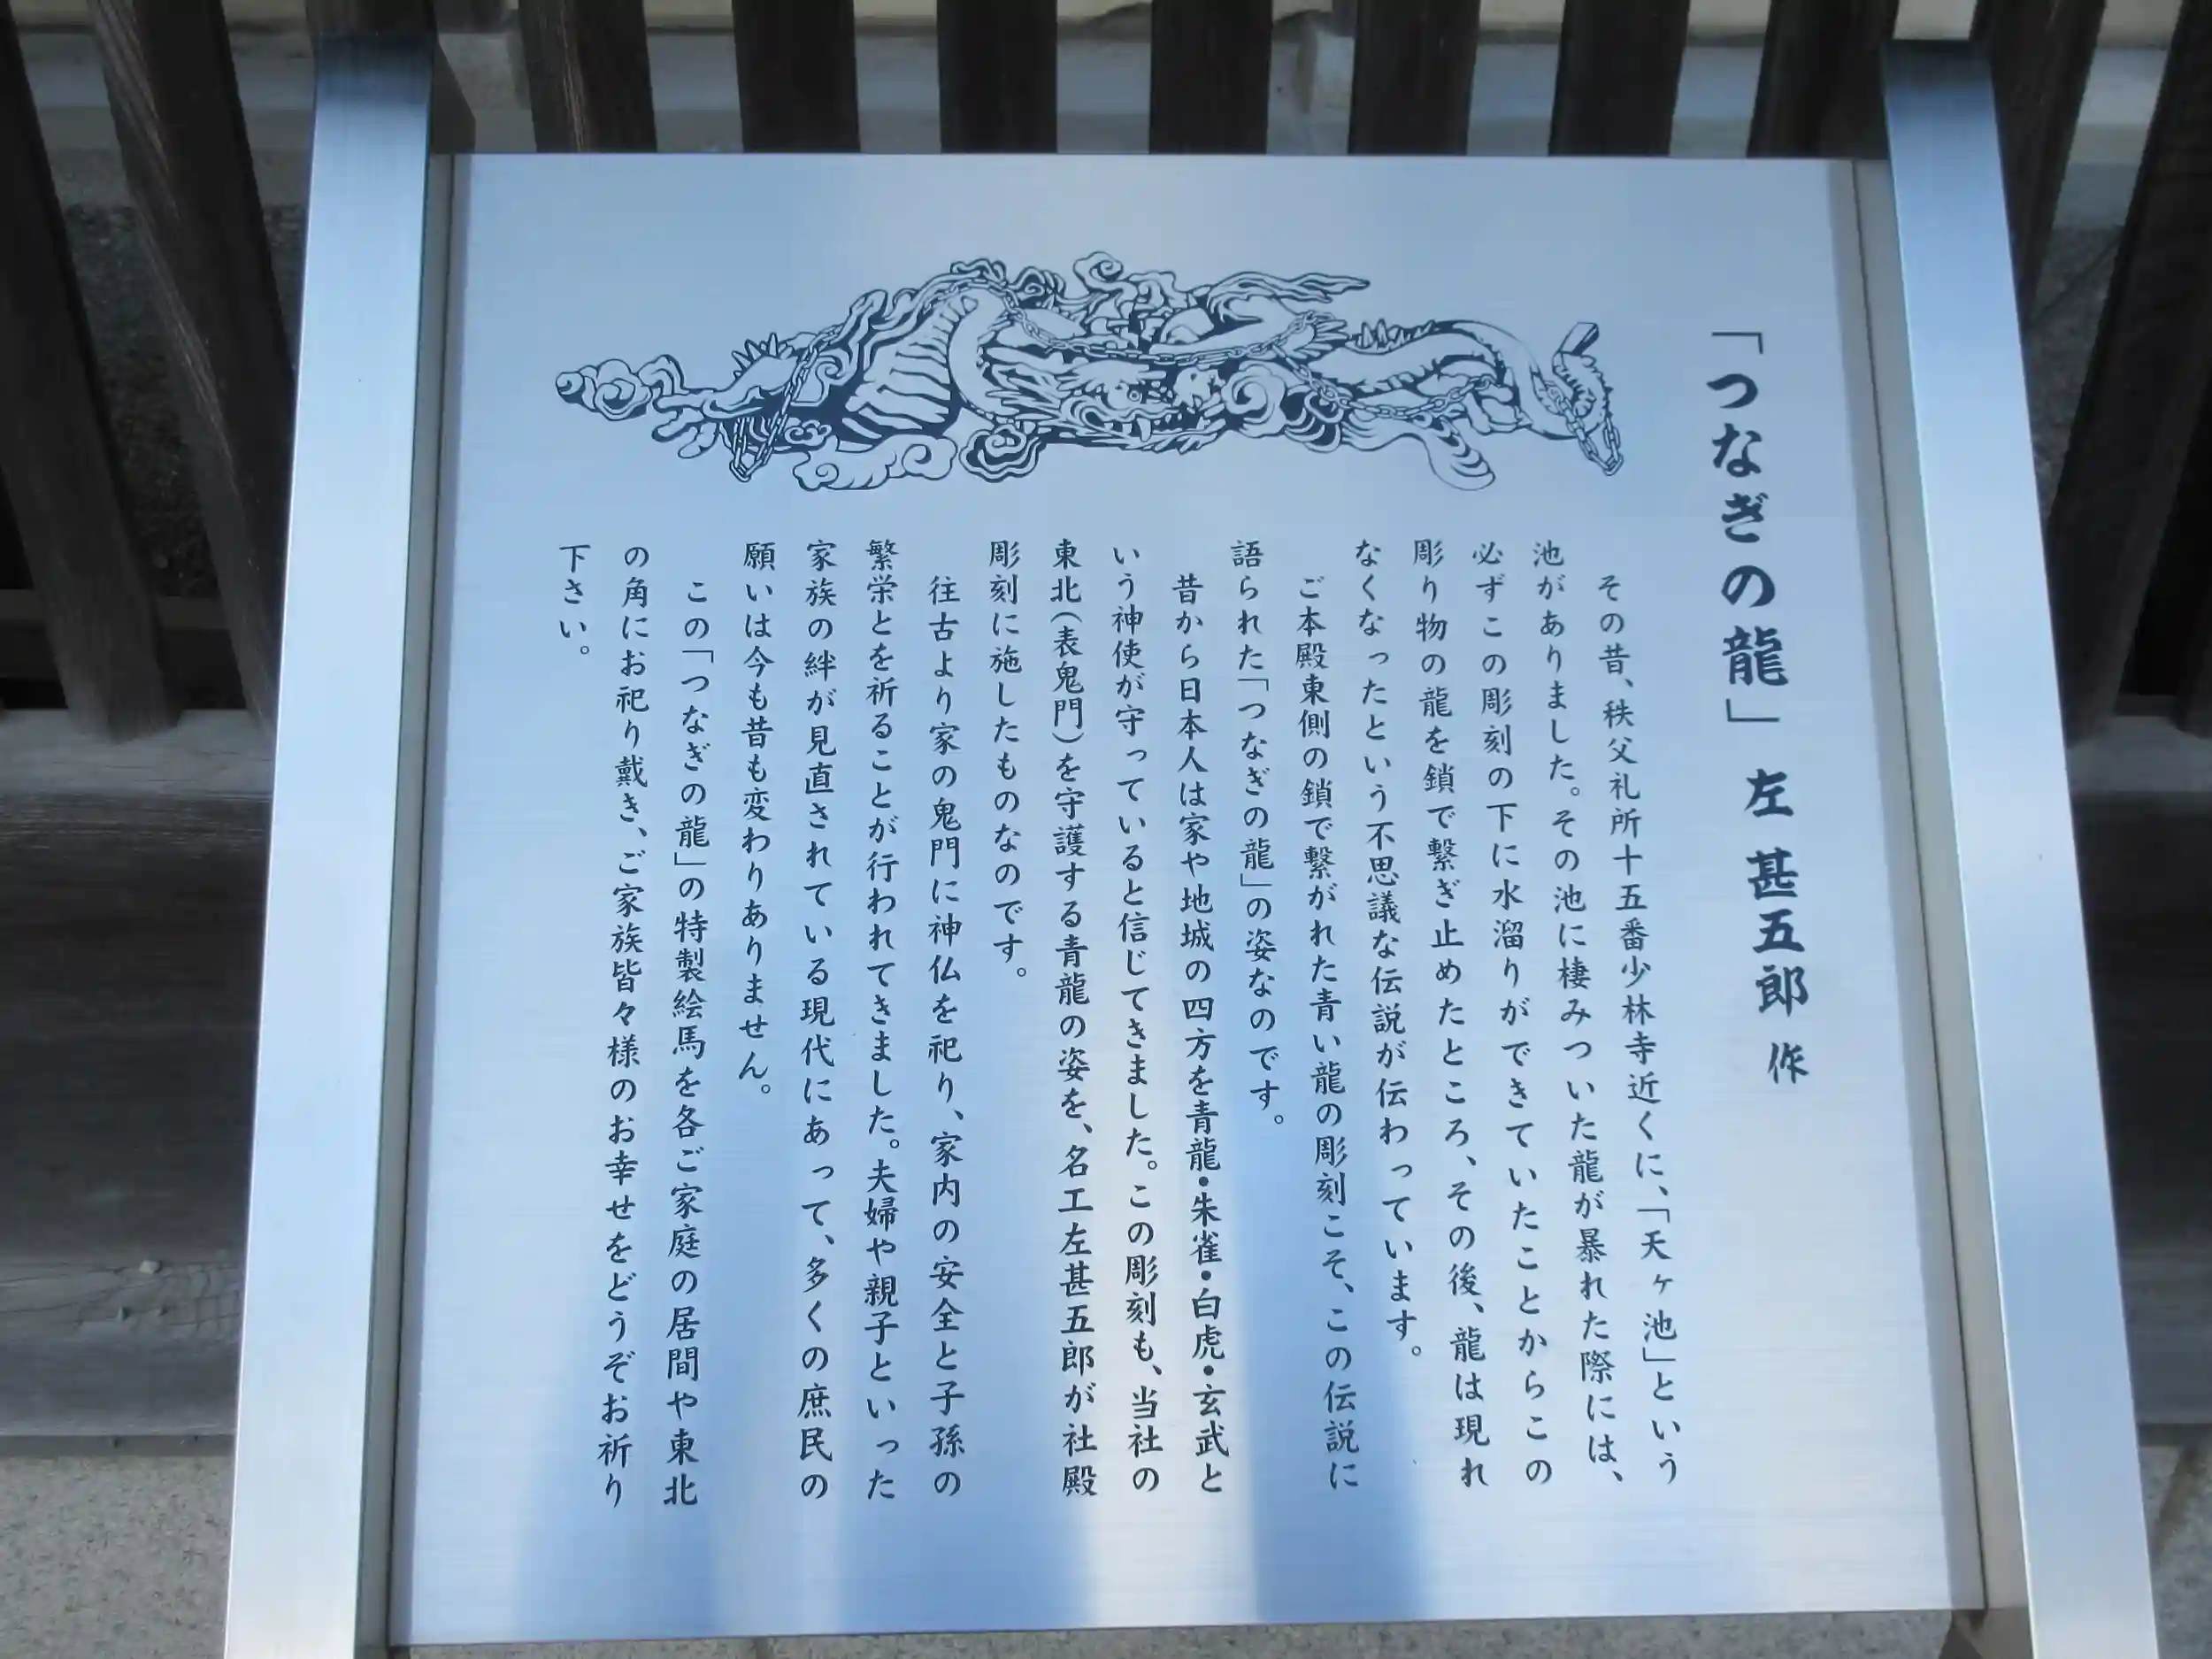 「つなぎの龍」 左 甚五郎 作
その昔、秩父礼所十五番少林寺近くに、「天ヶ池」という
池がありました。その池に棲みついた龍が暴れた際には、
必ずこの彫刻の下に水溜りができていたことからこの
彫り物の龍を鎖で繋ぎ止めたところ、その後、龍は現れ
なくなったという不思議な伝説が伝わっています。
ご本殿東側の鎖で繋がれた青い龍の彫刻こそ、この伝説に
語られた「つなぎの龍」の姿なのです。
昔から日本人は家や地城の四方を青龍・朱雀・白虎・玄武と
いう神使が守っていると信じてきました。この彫刻も、当社の
東北(表鬼門)を守護する青龍の姿を、名工左甚五郎が社殿
彫刻に施したものなのです。
往古より家の鬼門に神仏を祀り、家内の安全と子孫の
繁栄とを祈ることが行われてきました。夫婦や親子といった
家族の絆が見直されている現代にあって、多くの庶民の
願いは今も昔も変わりありません。
この「つなぎの龍」の特製絵馬を各ご家庭の居間や東北
の角にお祀り戴き、ご家族皆々様のお幸せをどうぞお祈り
下さい。